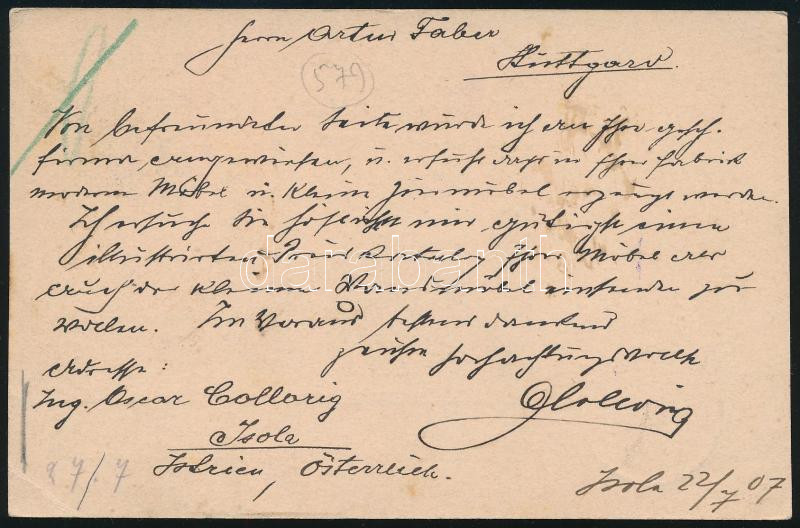 Herrn Artur Faber
Stuttgard.
579
Von befreundeter Seite wurde ich an Ihre gesch.
Firma angewiesen, u. erfuhr dass in Ihrer Fabrik
moderne Möbel u. kleine erzeugt werden.
Ich ersuche Sie höflichst mir gütigst einen
illustrirten Preiskatalog Ihrer Möbel als
auch der kleinen einsenden zu
wollen. Im Voraus bestens dankend
zeichne hochachtungsvollst
Adresse:
Ing. Oscar Collorig
Isola
Istrien, Österreich.
Isola 22/7 07
27/7
darabanth